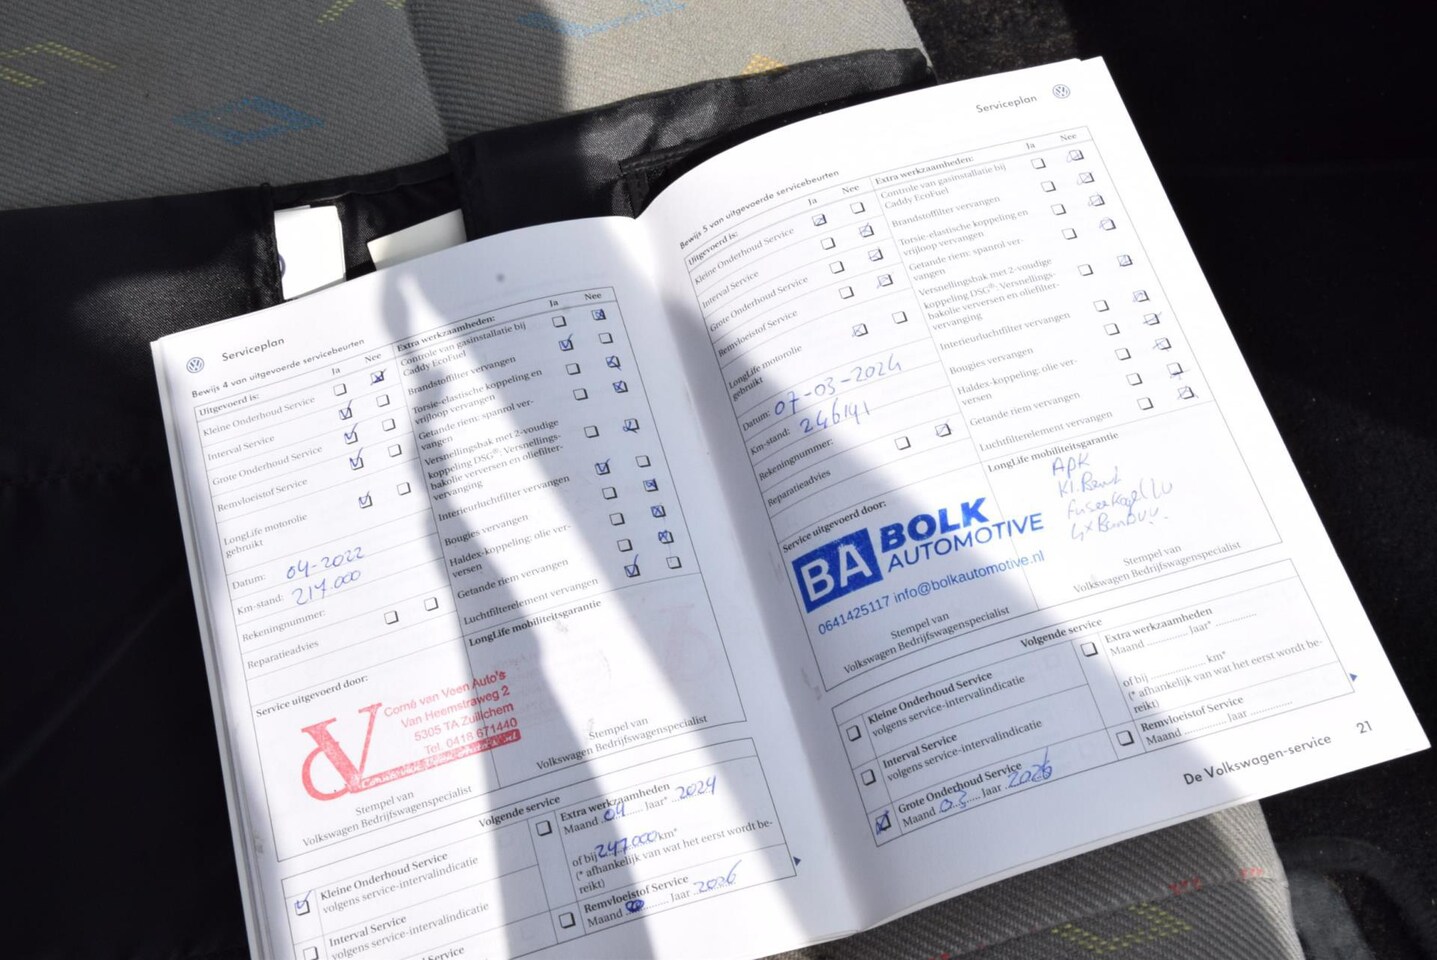 Serviceplan
Bewijs 4 van uitgevoerde servicebeurten
Ja
Nee
Uitgevoerd is:
Kleine Onderhoud Service
Interval Service
Grote Onderhoud Service
Remvloeistof Service
LongLife motorolie
gebruikt
Datum: 04-2022
Km-stand: 217.000
Rekeningnummer:
Reparatieadvies
Ja
Nee
Extra werkzaamheden:
Controle van gasinstallatie bij
Caddy EcoFuel
Brandstoffilter vervangen
Torsie-elastische koppeling en
vrijloop vervangen
Getande riem: spanrol ver-
vangen
Versnellingsbak met 2-voudige
koppeling DSG®: Versnellings-
bakolie verversen en oliefilter-
vervanging
Interieurluchtfilter vervangen
Bougies vervangen
Haldex-koppeling: olie ver-
versen
Getande riem vervangen
Luchtfilterelement vervangen
LongLife mobiliteitsgarantie
Service uitgevoerd door:
Corné van Veen Auto's
Van Heemstraweg 2
5305 TA Zuilichem
Tel. 0418 671440
Stempel van
Volkswagen Bedrijfswagenspecialist
Stempel van
Volkswagen Bedrijfswagenspecialist
Volgende service
Kleine Onderhoud Service
volgens service-intervalindicatie
Interval Service
volgens service-intervalindicatie
Extra werkzaamheden
Maand 04 Jaar* 2024
of bij 247.000 km*
(* afhankelijk van wat het eerst wordt be-
reikt)
Remvloeistof Service
Maand Jaar 2026
Serviceplan
Bewijs 5 van uitgevoerde servicebeurten
Ja
Nee
Uitgevoerd is:
Kleine Onderhoud Service
Interval Service
Grote Onderhoud Service
Remvloeistof Service
LongLife motorolie
gebruikt
Datum: 07-03-2024
Km-stand: 246141
Rekeningnummer:
Reparatieadvies
Ja
Nee
Extra werkzaamheden:
Controle van gasinstallatie bij
Caddy EcoFuel
Brandstoffilter vervangen
Torsie-elastische koppeling en
vrijloop vervangen
Getande riem: spanrol ver-
vangen
Versnellingsbak met 2-voudige
koppeling DSG®: Versnellings-
bakolie verversen en oliefilter-
vervanging
Interieurluchtfilter vervangen
Bougies vervangen
Haldex-koppeling: olie ver-
versen
Getande riem vervangen
Luchtfilterelement vervangen
LongLife mobiliteitsgarantie
APK
Service uitgevoerd door:
BA BOLK
AUTOMOTIVE
0641425117 info@bolkautomotive.nl
Stempel van
Volkswagen Bedrijfswagenspecialist
Stempel van
Volkswagen Bedrijfswagenspecialist
Volgende service
Kleine Onderhoud Service
volgens service-intervalindicatie
Interval Service
volgens service-intervalindicatie
Grote Onderhoud Service
Maand 03 Jaar 2026
Extra werkzaamheden
Maand Jaar*
of bij km*
(* afhankelijk van wat het eerst wordt be-
reikt)
Remvloeistof Service
Maand Jaar
De Volkswagen-service 21